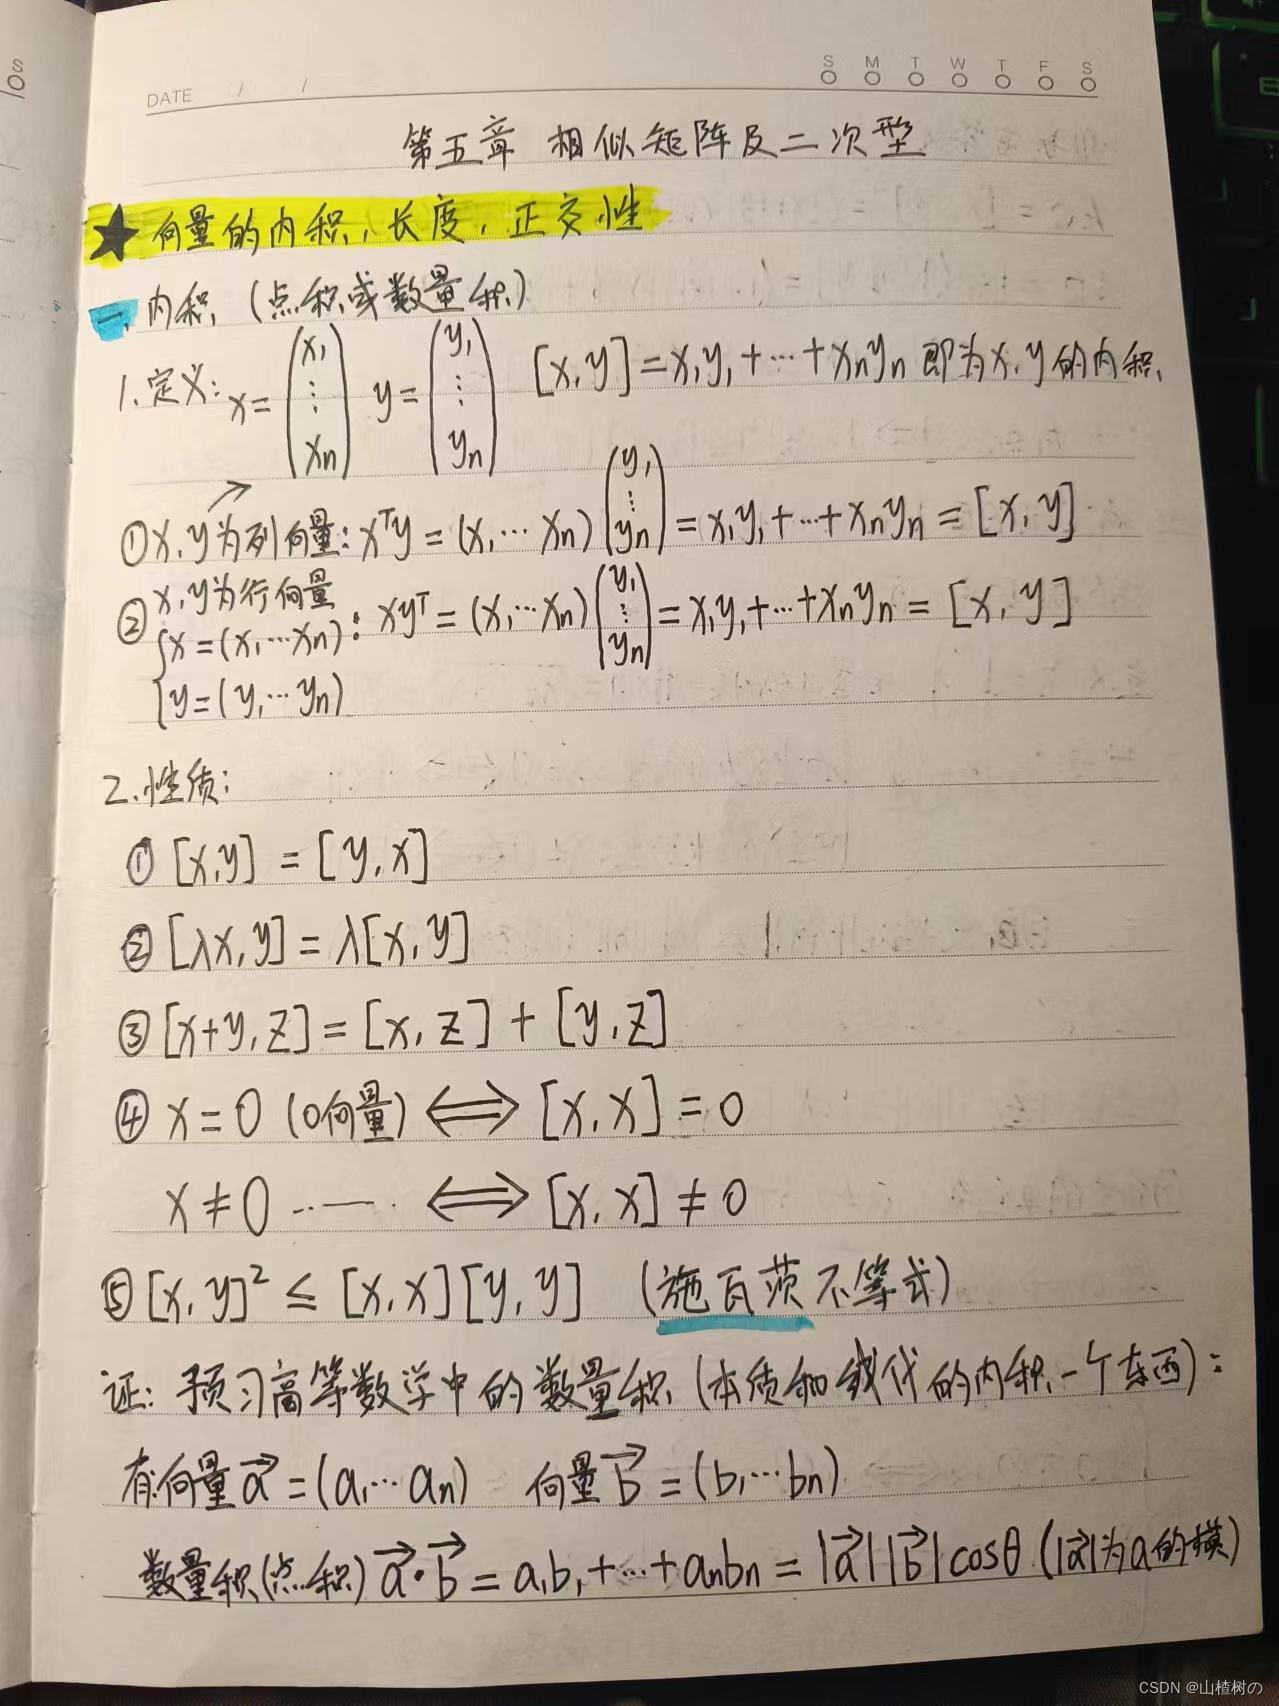 DATE / /
S M T W T F S
第五章 相似矩阵及二次型
★ 向量的内积, 长度, 正交性
一. 内积 (点积或数量积)
1. 定义: x = (x₁ ⋮ xₙ) y = (y₁ ⋮ yₙ) [x, y] = x₁y₁ + ⋯ + xₙyₙ 即为 x, y 的内积.
① x, y 为列向量: xᵀy = (x₁ ⋯ xₙ) (y₁ ⋮ yₙ) = x₁y₁ + ⋯ + xₙyₙ = [x, y]
② x, y 为行向量 { x = (x₁ ⋯ xₙ) y = (y₁ ⋯ yₙ) : xyᵀ = (x₁ ⋯ xₙ) (y₁ ⋮ yₙ) = x₁y₁ + ⋯ + xₙyₙ = [x, y]
2. 性质:
① [x, y] = [y, x]
② [λx, y] = λ[x, y]
③ [x+y, z] = [x, z] + [y, z]
④ x = 0 (0向量) ⟺ [x, x] = 0
x ≠ 0 ⋯⋯ ⟺ [x, x] ≠ 0
⑤ [x, y]² ≤ [x, x][y, y] (施瓦茨不等式)
证: 预习高等数学中的数量积 (本质和线代的内积一个东西):
有向量 a⃗ = (a₁ ⋯ aₙ) 向量 b⃗ = (b₁ ⋯ bₙ)
数量积(点积) a⃗·b⃗ = a₁b₁ + ⋯ + aₙbₙ = |a⃗||b⃗|cosθ (|a⃗|为a的模)
S
CSDN @山楂树の